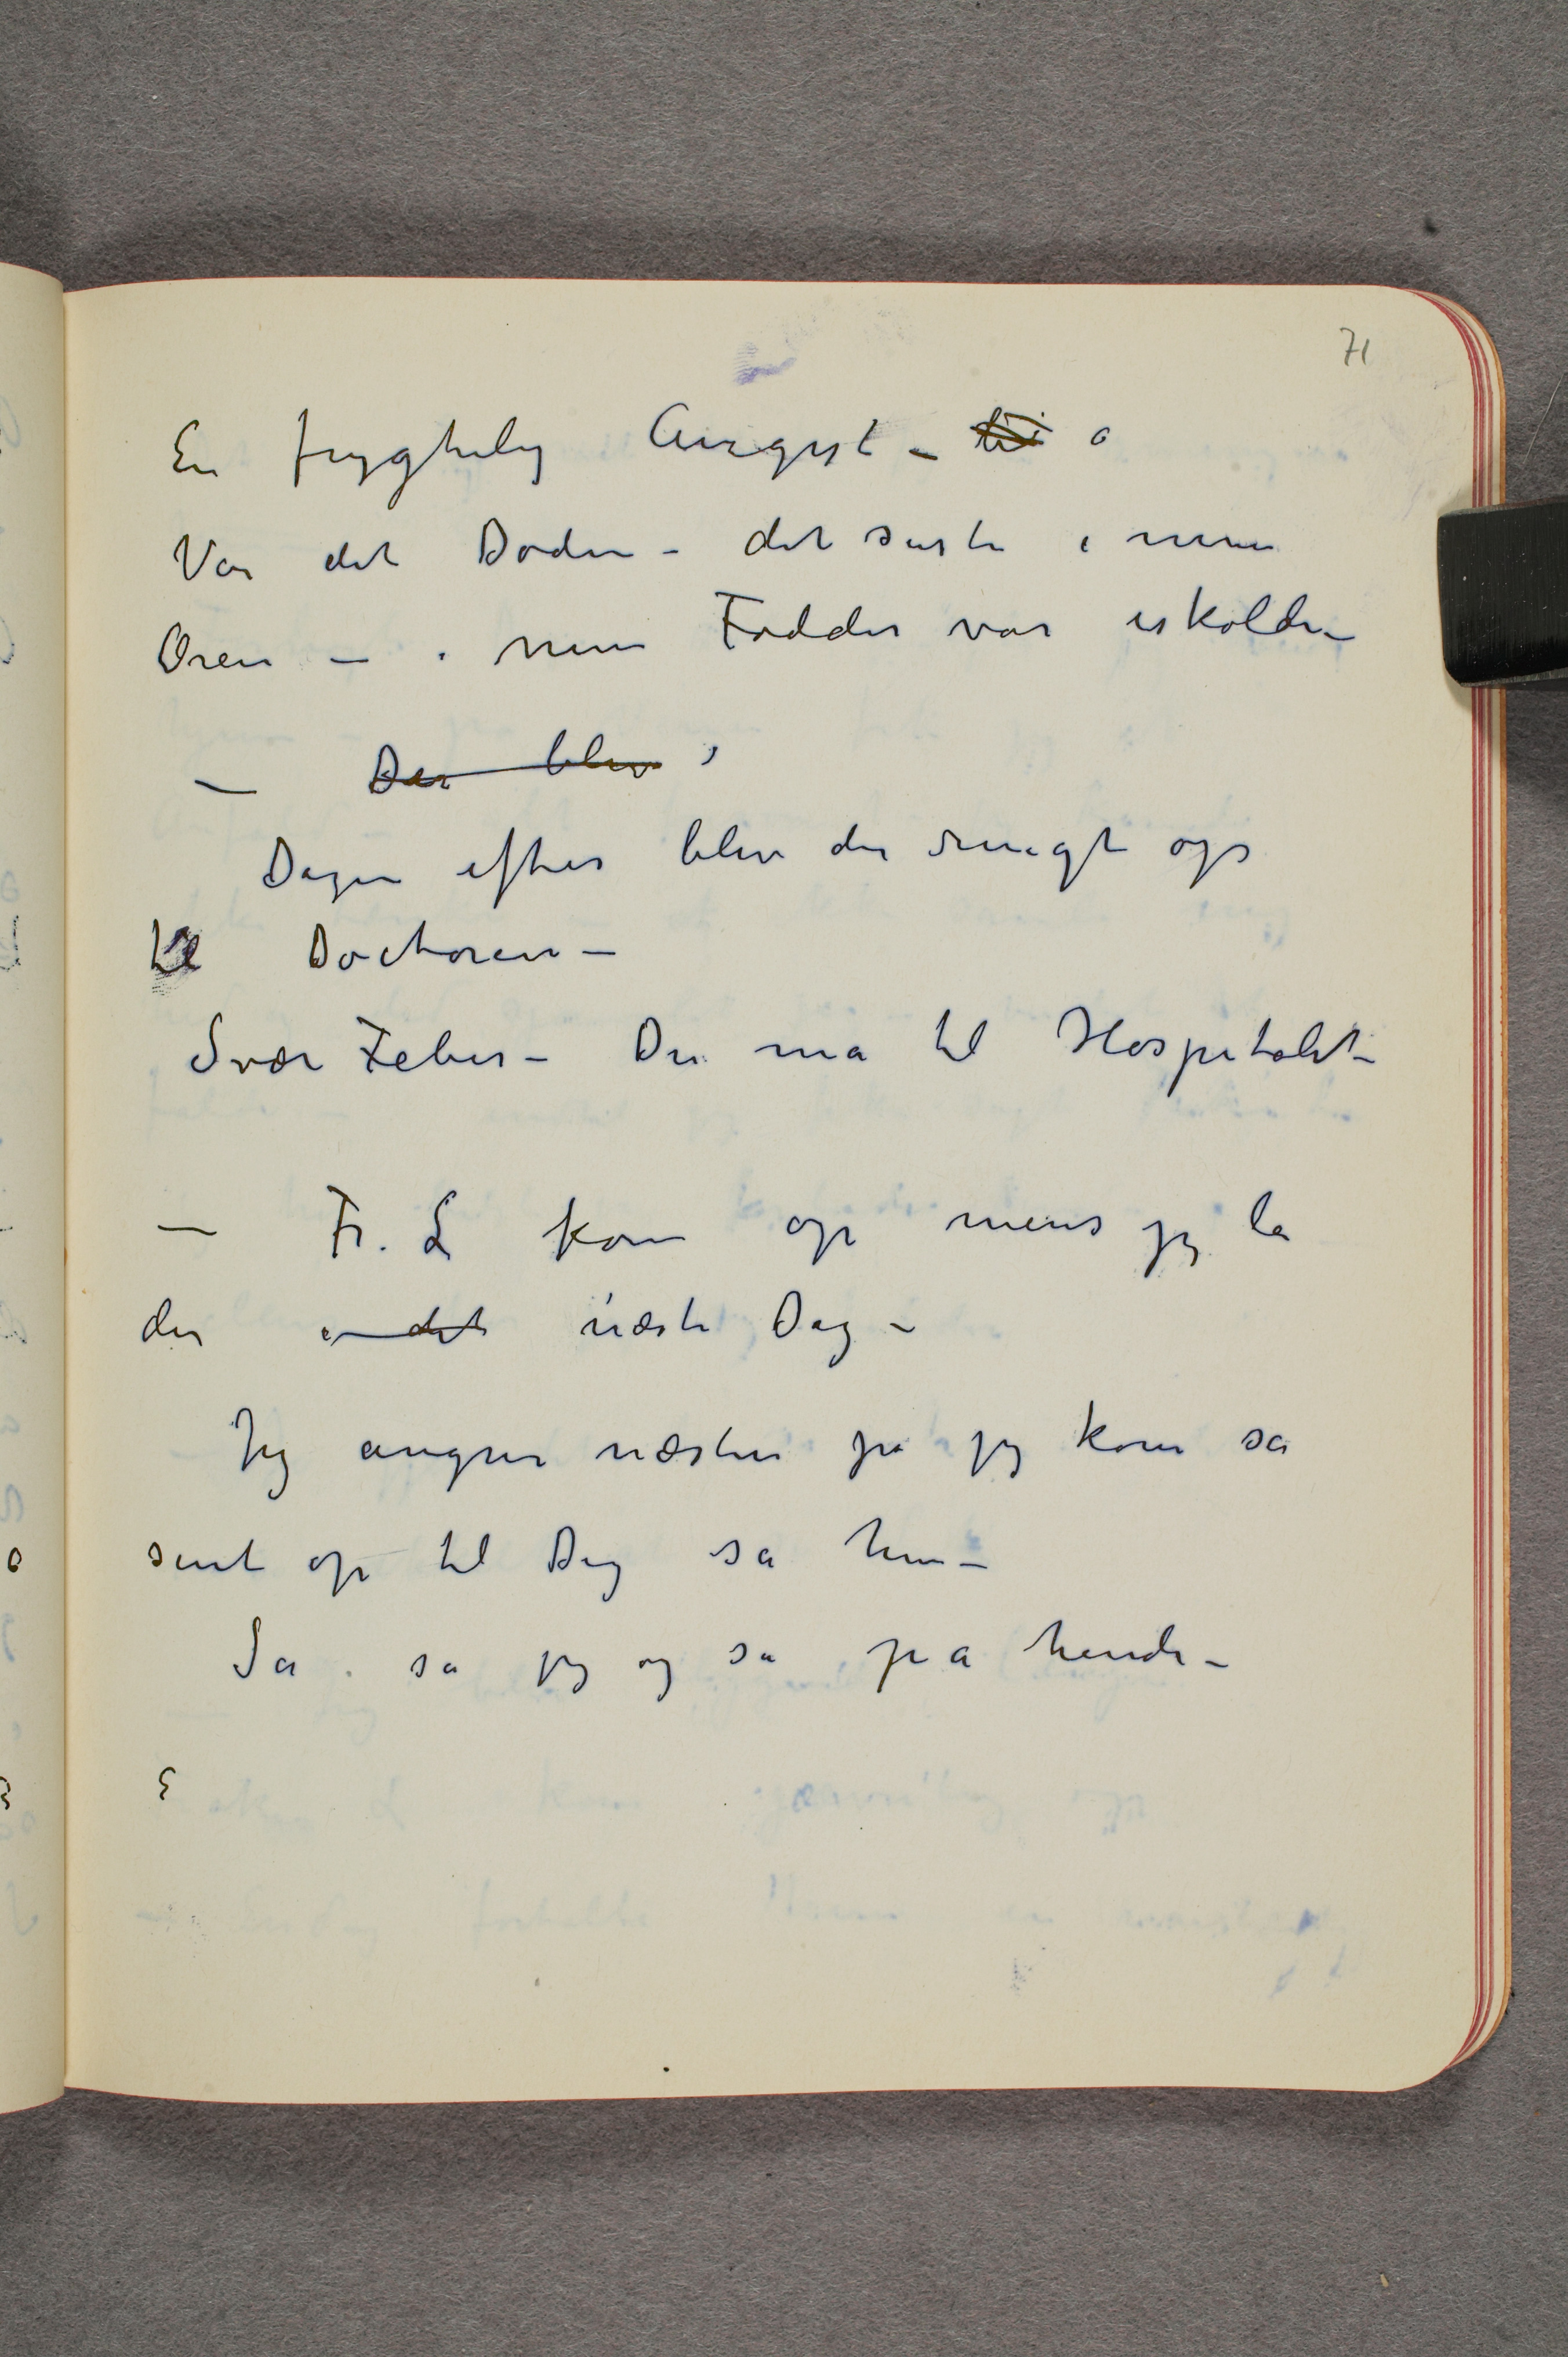 71
En frygtelig Angyst –
Var det Døden – det suste i mine
Øren – mine Fødder var iskolde –
– Der blev
Dagen efter blev der ringt op
til Doctoren –
Svær Feber – Du må til Hospitalet –
– Fr. L kom op mens jeg lå
der i det næste Dag –
Jeg angrer næsten på jeg kom så
sent op til Dig sa hun –
Sa jeg og så på hende –